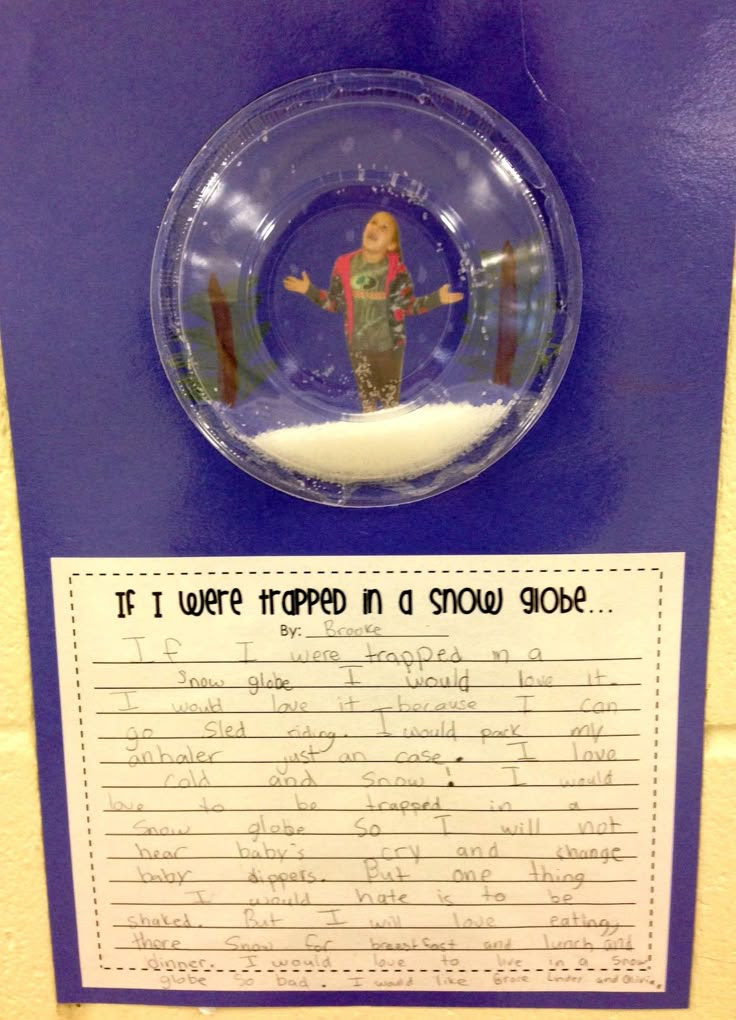 IF I were trapped in a snow globe...
By: Brooke
If I were trapped in a
Snow globe I would love it.
I would love it because I can
go Sled riding. I would pack my
anhaler just an case. I love
cold and snow! I would
love to be trapped in a
Snow globe So I will not
hear baby's cry and change
baby dippers. But one thing
I would hate is to be
shaked. But I will love eating
there Snow for breastfast and lunch and
dinner. I would love to live in a Snow
globe So bad. I would like Grace Linder and Olivia.